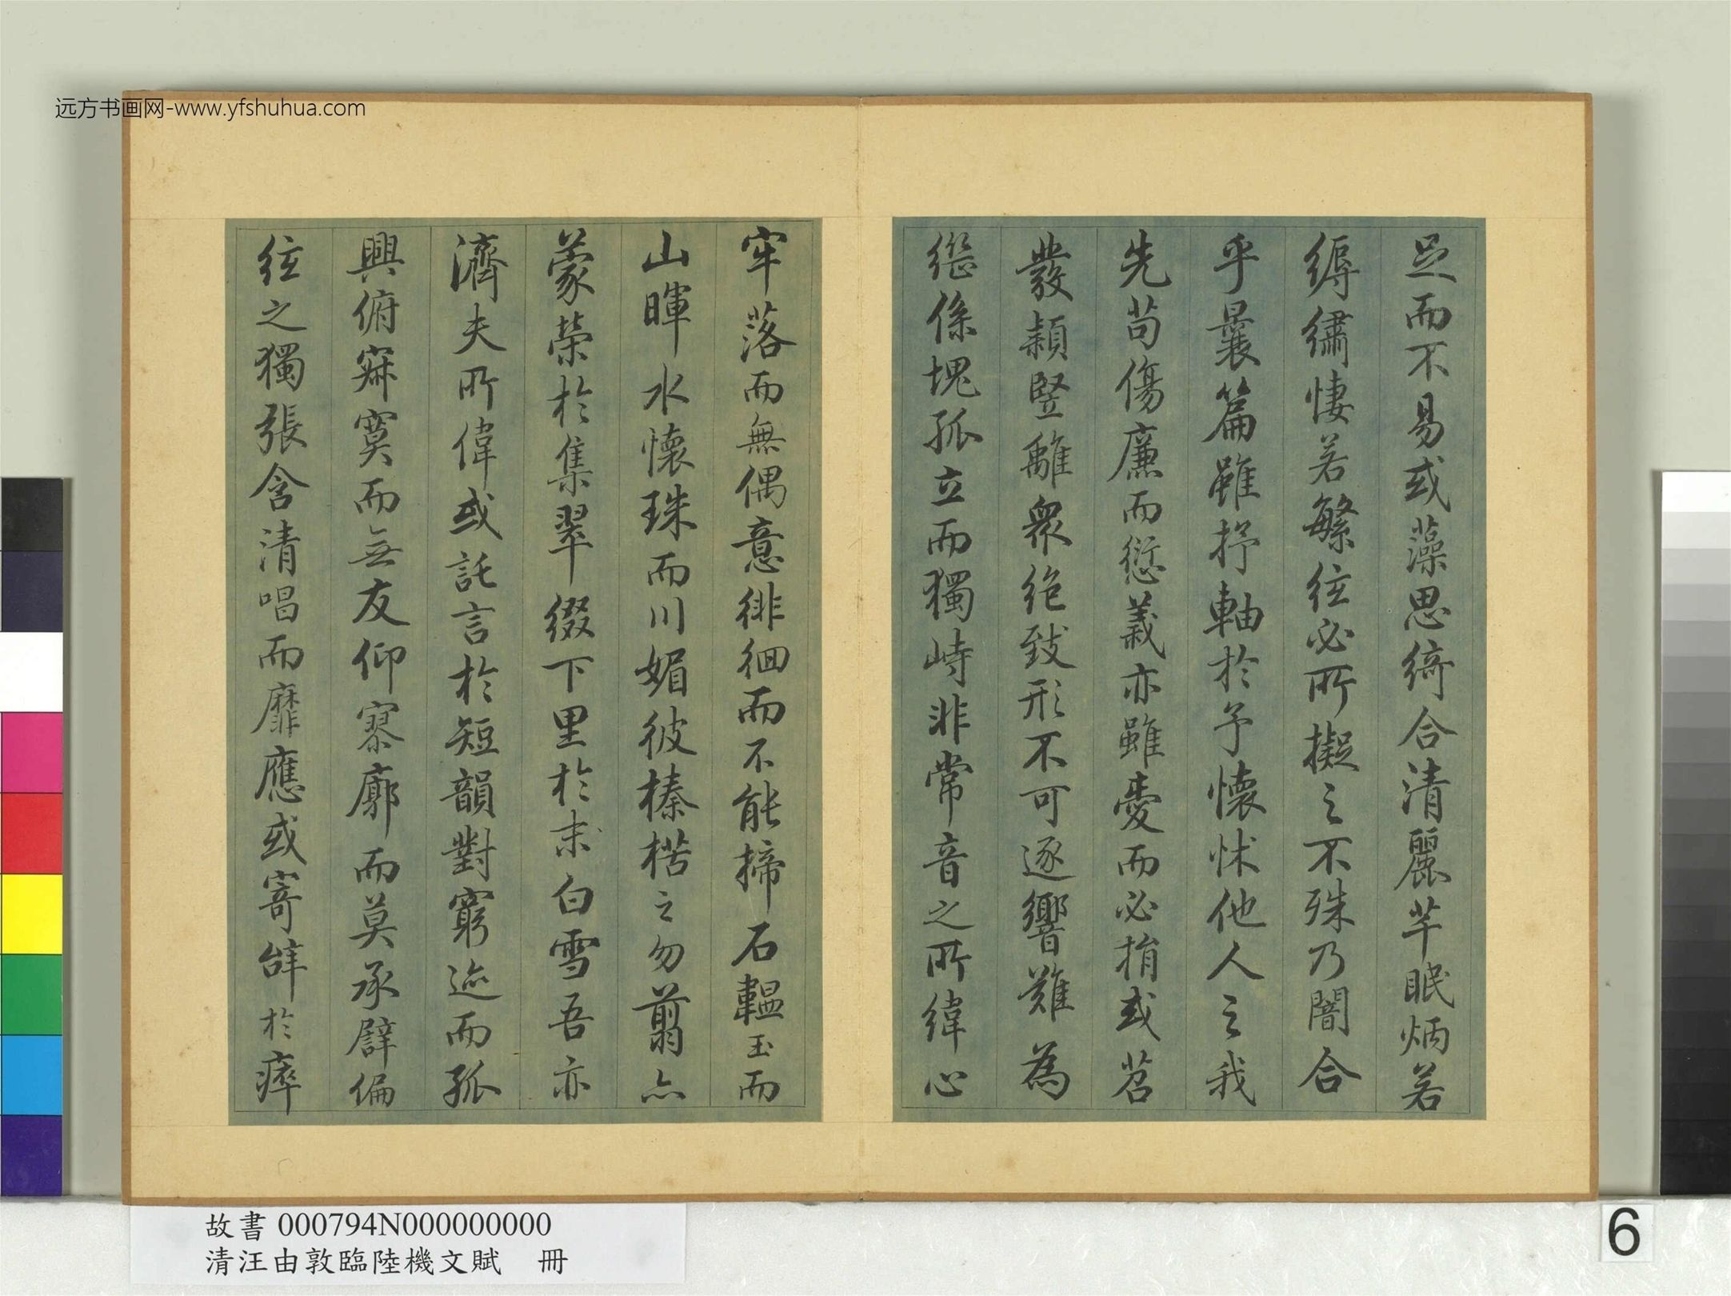 远方书画网-www.yfshuhua.com
足而不易或藻思綺合清麗芊眠炳若
縟繡悽若繁絃必所擬之不殊乃闇合
乎曩篇雖抒軸於予懷怵他人之我
先苟傷廉而愆義亦雖愛而必捐或苕
發穎豎離衆絶致形不可逐響難為
係塊孤立而獨峙非常音之所緯心
牢落而無偶意徘徊而不能揥石韞玉而
山暉水懷珠而川媚彼榛楛之勿翦亦
蒙榮於集翠綴下里於末白雪吾亦
濟夫所偉或託言於短韻對窮迹而孤
興俯寂寞而無友仰寥廓而莫承譬偏
絃之獨張含清唱而靡應或寄辭於瘁
故書 000794N000000000
清汪由敦臨陸機文賦 冊
6